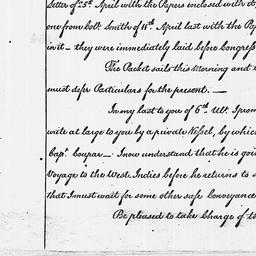 letter of 5th April with the Papers enclosed with it,
one from Colo. Smith of 11th April last with the Pa
in it – they were immediately laid before Congress
The Packet sails this Morning and
must defer Particulars for the present. —
In my last to you of 6th Ulto. I prom
write at large to you by a private Vessel, by which
Capt. Coupar — I now understand that he is goi
Voyage to the West Indies before he returns to
that I must wait for some other safe Conveyance
Be pleased to take Charge of th